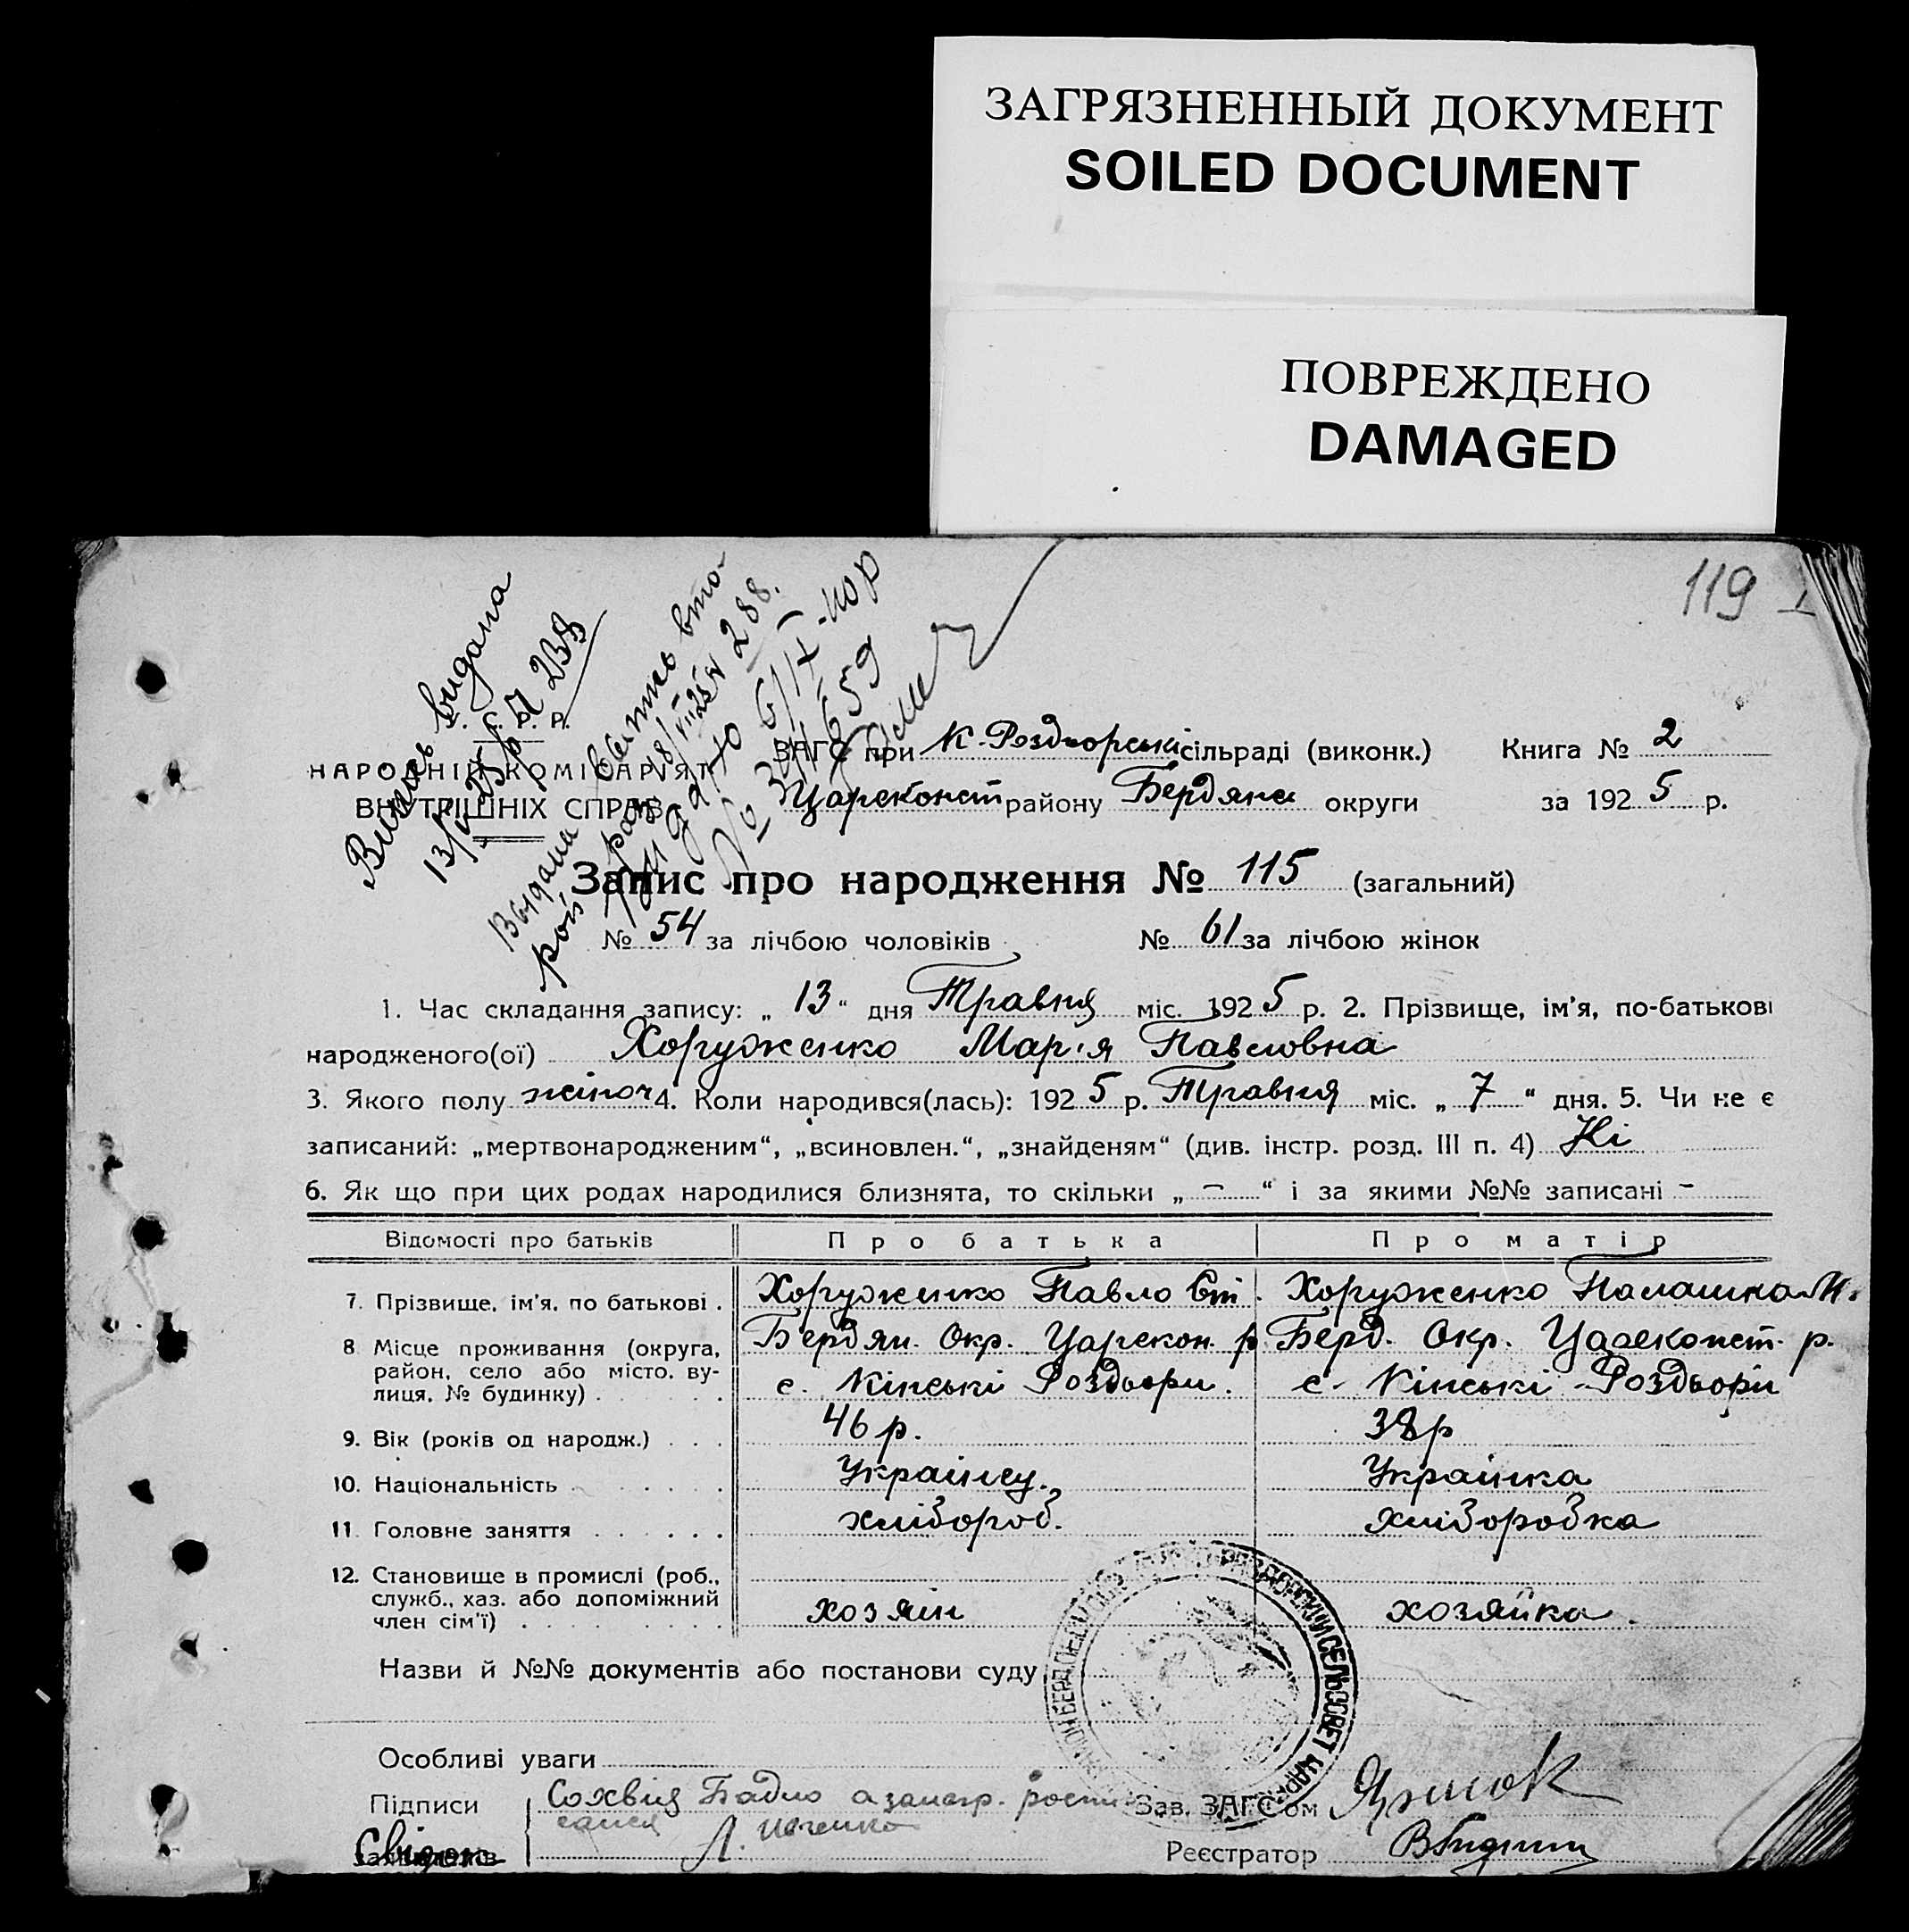 ЗАГРЯЗНЕННЫЙ ДОКУМЕНТ
SOILED DOCUMENT
ПОВРЕЖДЕНО
DAMAGED
119
Виписъ видана
13/V 25 р. № 238
Выдана вито-
рой раз 18/VII 25 № 288.
У. С. Р. Р.
НАРОДНІЙ КОМІСАРІЯТ
ВНУТРІШНІХ СПРАВ
ЗАГС при К-Роздорській сільраді (виконк.) Книга № 2
Цареконст району Бердянс округи за 1925 р.
Запис про народження № 115 (загальний)
№ 54 за лічбою чоловіків № 61 за лічбою жінок
1. Час складання запису: „ 13 “ дня Травня міс. 1925 р. 2. Прізвище, ім'я, по-батькові
народженого(ої) Хорудженко Мар'я Павловна
3. Якого полу жіноч 4. Коли народився(лась): 1925 р. Травня міс. „ 7 “ дня. 5. Чи не є
записаний: „мертвонародженим“, „всиновлен.“, „знайденям“ (див. інстр. розд. III п. 4) Ні
6. Як що при цих родах народилися близнята, то скільки „ – “ і за якими №№ записані –
Відомості про батьків Про батька Про матір
7. Прізвище, ім'я, по батькові . Хорудженко Павло Єт. Хорудженко Палашка М.
8 Місце проживання (округа, район, село або місто, вулиця, № будинку) . . Бердян. Окр. Царекон. р Берд. Окр. Цареконст. р.
с. Кінські Роздори. с. Кінські-Роздори
9. Вік (років од народж.) . . . 46 р. 38 р
10. Національність . . . . . Українец. Українка
11. Головне заняття . . . . . хлібороб. хліборобка
12. Становище в промислі (роб., служб., хаз. або допоміжний член сім'ї) . . . . . . . . хозяін хозяйка
Назви й №№ документів або постанови суду
Особливі уваги
Підписи
заявителів
Зав. ЗАГС'ом
Реєстратор